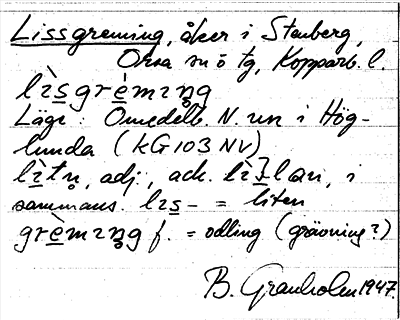 Lissgreming, åker i Stenberg,
Orsa sn ö tg, Kopparb. l.
lɪ̀s̲grè̲mɪŋg
Läge: Omedelb. N. um i Hög-
lunda (KG 103 NV)
lɪ̀tn̥, adj., ack. i
sammans. lɪs̲- = liten
grè̲mɪŋg f. = odling (grävning?)
B. Granholm 1947.